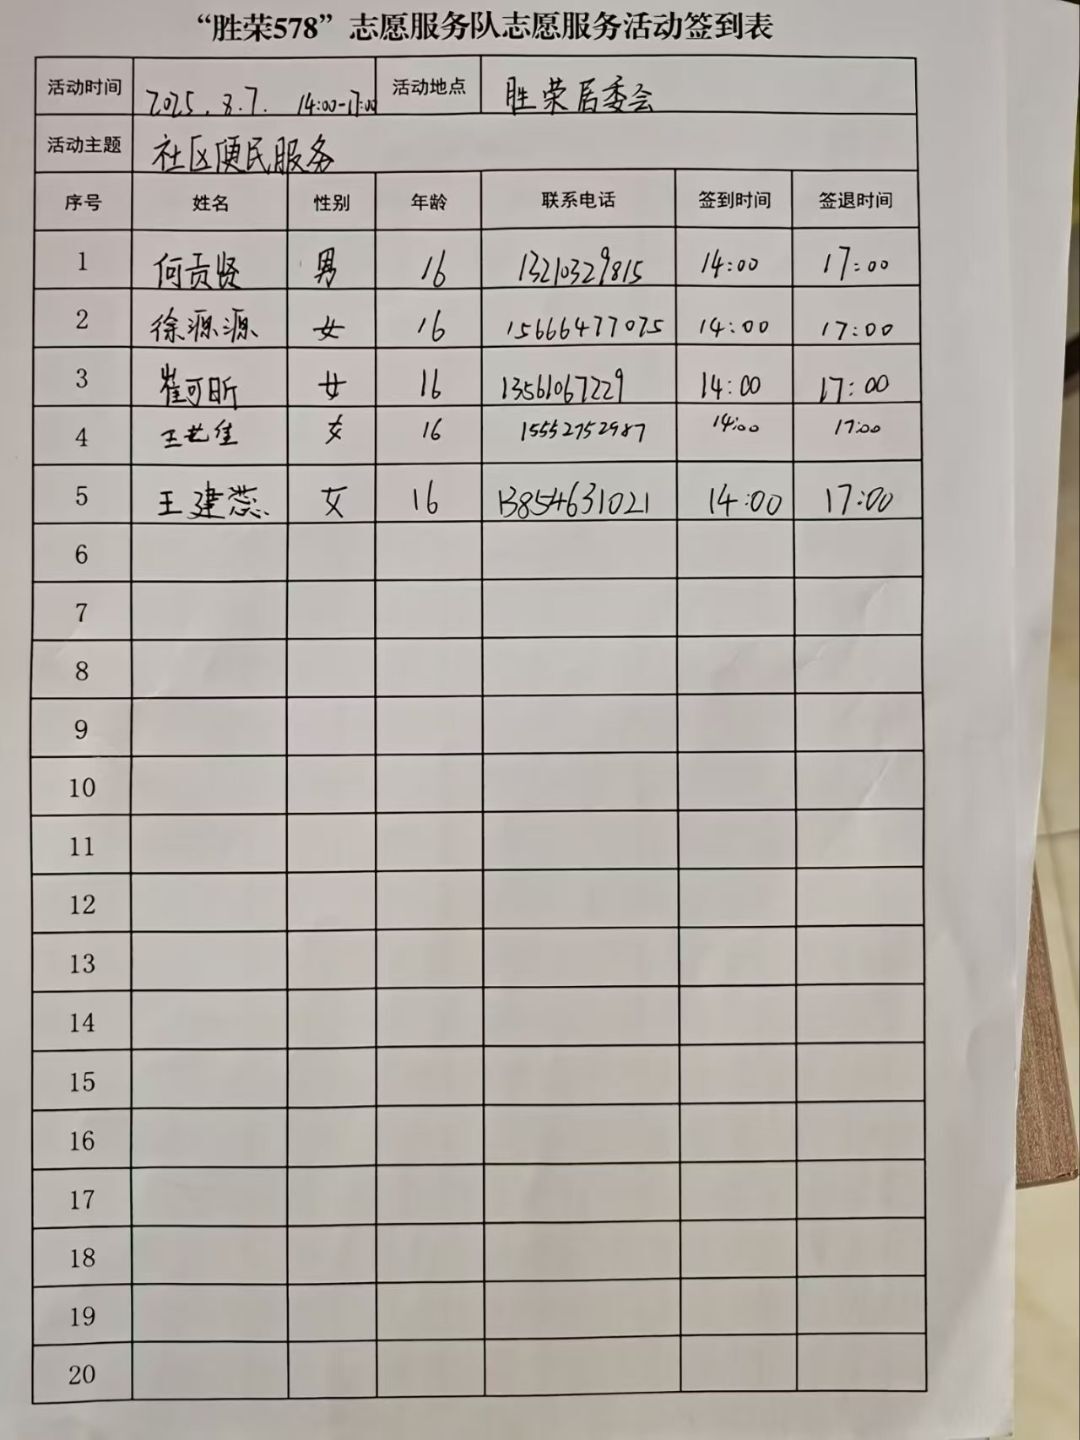 “胜荣578”志愿服务队志愿服务活动签到表
活动时间 2025.8.7. 14:00-17:00 活动地点 胜荣居委会
活动主题 社区便民服务
序号 姓名 性别 年龄 联系电话 签到时间 签退时间
1 何贡贤 男 16 13210329815 14:00 17:00
2 徐源源 女 16 15666477075 14:00 17:00
3 崔可昕 女 16 13561067229 14:00 17:00
4 王艺佳 女 16 15552752987 14:00 17:00
5 王建蕊 女 16 13854631021 14:00 17:00
6
7
8
9
10
11
12
13
14
15
16
17
18
19
20